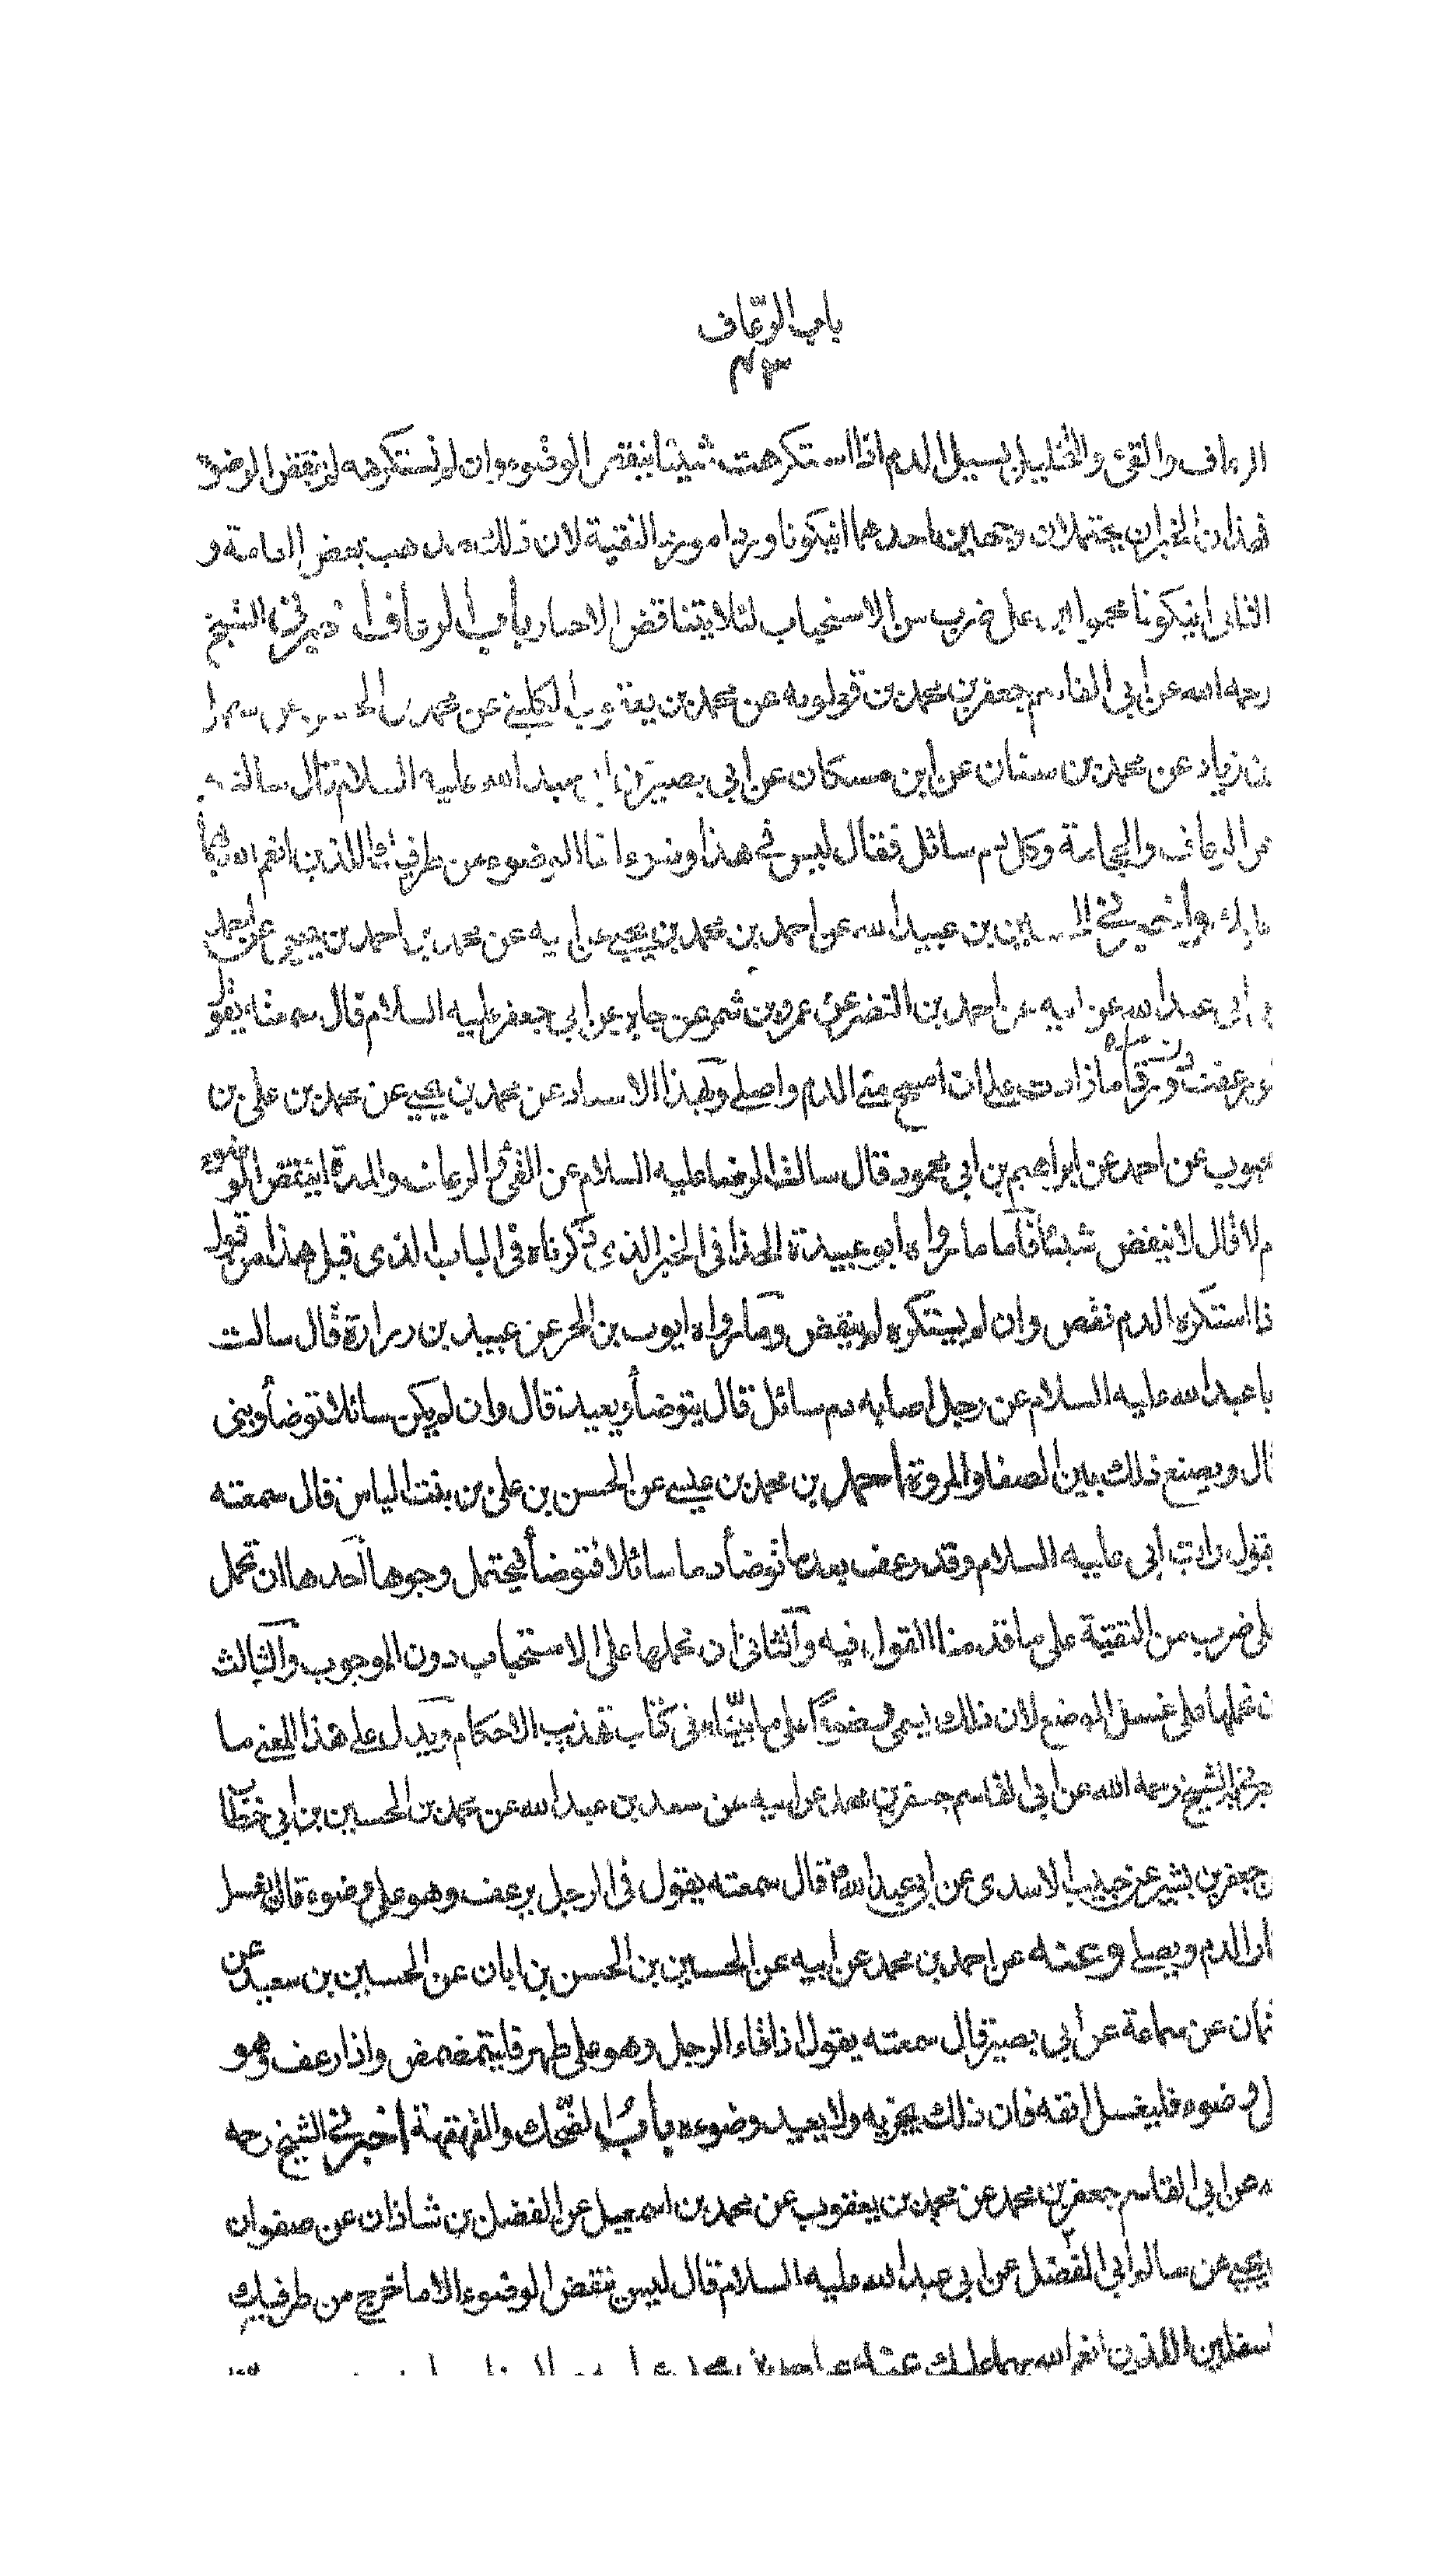 باب الرعاف
٤٣
الرعاف والقئ والتخليل يسيل الدم اذا استكرهت شيئا ينقض الوضوء وان لم تستكرهه لم ينقض الوضوء
فهذان الخبران يحتملان وجهين احدهما ان يكونا وردا مورد التقية لان ذلك مذهب بعض العامة و
الثانى ان يكونا محمولين على ضرب من الاستحباب لئلا يتناقض الاخبار باب الرعاف اخبرنى الشيخ
رحمه الله عن ابي القاسم جعفر بن محمد بن قولويه عن محمد بن يعقوب الكليني عن محمد بن الحسن عن سهل
بن زياد عن محمد بن سنان عن ابن مسكان عن ابي بصير عن ابى عبد الله عليه السلام قال سالته
عن الرعاف والحجامة وكل دم سائل فقال ليس في هذا وضوء انما الوضوء من طرفيك اللذين انعم الله بهما
عليك واخبرني الحسين بن عبيد الله عن احمد بن محمد بن يحيى عن ابيه عن محمد بن احمد بن يحيى عن احمد
بن ابى عبد الله عن ابيه عن احمد بن النضر عن عمرو بن شمر عن جابر عن ابي جعفر عليه السلام قال سمعته يقول
لو رعفت دورقا ما زدت على ان امسح مني الدم واصلى وبهذا الاسناد عن محمد بن يحيى عن محمد بن على بن
محبوب عن احمد عن ابراهيم بن ابي محمود قال سالت الرضا عليه السلام عن القئ والرعاف والمدة اينقض الوضوء
ام لا قال لا ينقض شيئا فاما ما رواه ابو عبيدة الحذا فى الخبر الذي ذكرناه فى الباب الذى قبل هذا من قوله
اذا استكره الدم نقض وان لم يستكره لم ينقض وما رواه ايوب بن الحر عن عبيد بن زرارة قال سالت
ابا عبد الله عليه السلام عن رجل اصابه دم سائل قال يتوضأ ويعيد قال وان لم يكن سائلا توضأ وبنى
قال ويصنع ذلك بين الصفا والمروة احمد بن محمد بن عيسى عن الحسن بن على بن بنت الياس قال سمعته
يقول رايت ابى عليه السلام وقد رعف بعد ما توضأ دما سائلا فتوضأ فيحتمل وجوها احدها ان تحمل
على ضرب من التقية على ما قدمنا القول فيه والثانى ان نحملها على الاستحباب دون الوجوب والثالث
ان نحملها على غسل الموضع لان ذلك يسمى وضوءا على ما بيناه فى كتاب تهذيب الاحكام ويدل على هذا المعنى ما
اخبرنى الشيخ رحمه الله عن ابى القاسم جعفر بن محمد عن ابيه عن سعد بن عبد الله عن محمد بن الحسين بن ابي خطاب
عن جعفر بن بشير عن حبيب الاسدى عن ابي عبد الله ع قال سمعته يقول فى الرجل يرعف وهو على وضوء قال يغسل
اثار الدم ويصلى وعنه عن احمد بن محمد عن ابيه عن الحسين بن الحسن بن ابان عن الحسين بن سعيد عن
عثمان عن سماعة عن ابي بصير قال سمعته يقول اذا قاء الرجل وهو على طهر فليتمضمض واذا رعف وهو
على وضوء فليغسل انفه فان ذلك يجزيه ولا يعيد وضوءه باب الضحك والقهقهة اخبرني الشيخ رحمه
الله عن ابى القاسم جعفر بن محمد عن محمد بن يعقوب عن محمد بن اسمعيل عن الفضل بن شاذان عن صفوان
بن يحيى عن سالم ابي الفضل عن ابي عبد الله عليه السلام قال ليس ينقض الوضوء الا ما خرج من طرفيك
الاسفلين اللذين انعم الله بهما عليك عنه عن احمد بن محمد